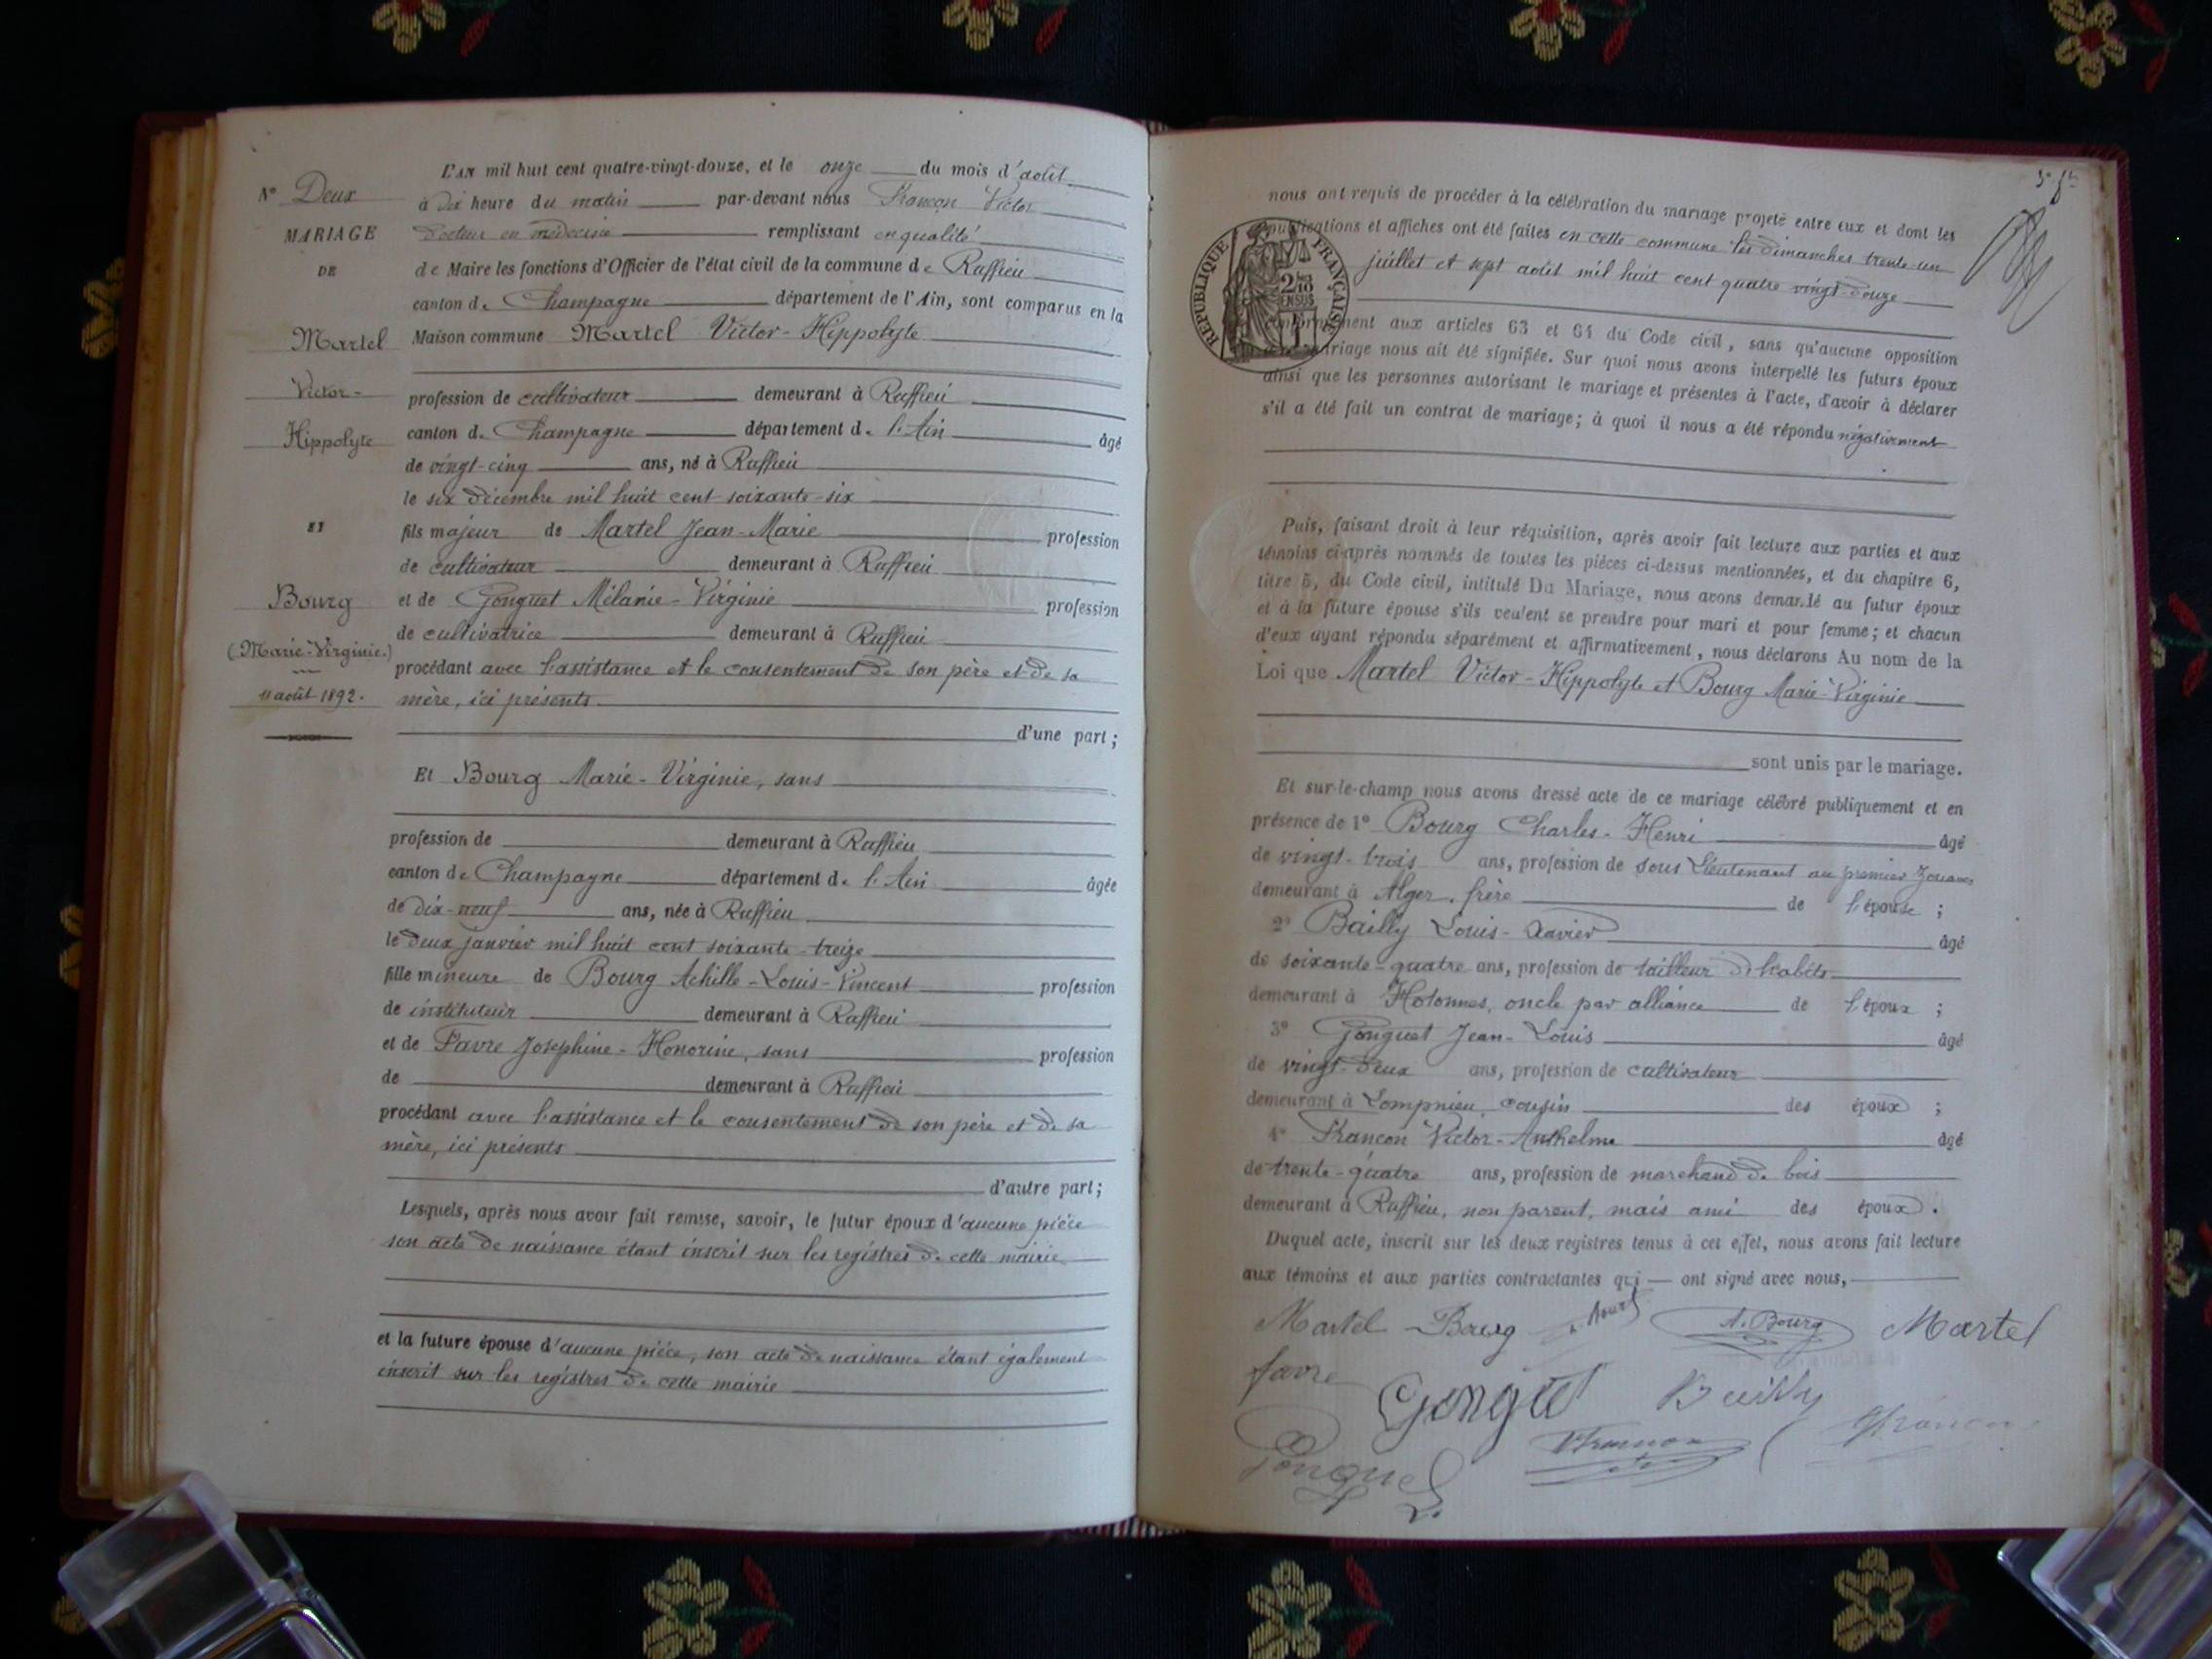 L'AN mil huit cent quatre-vingt-douze, et le onze du mois d'août
N° Deux
à dix heure du matin par-devant nous Francon Victor
MARIAGE
Docteur en médecine remplissant en qualité
DE
de Maire les fonctions d'Officier de l'état civil de la commune de Ruffieu
canton de Champagne département de l'Ain, sont comparus en la
Martel
Maison commune Martel Victor-Hippolyte
Victor-
profession de cultivateur demeurant à Ruffieu
Hippolyte
canton de Champagne département de l'Ain âgé
de vingt-cinq ans, né à Ruffieu
le six décembre mil huit cent soixante-six
ET
fils majeur de Martel Jean-Marie profession
de cultivateur demeurant à Ruffieu
Bourg
et de Gonguet Mélanie-Virginie profession
de cultivatrice demeurant à Ruffieu
(Marie-Virginie.)
procédant avec l'assistance et le consentement de son père et de sa
11 août 1892.
mère, ici présents
d'une part;
Et Bourg Marie-Virginie, sans
profession de demeurant à Ruffieu
canton de Champagne département de l'Ain âgée
de dix-neuf ans, née à Ruffieu
le deux janvier mil huit cent soixante-treize
fille mineure de Bourg Achille-Louis-Vincent profession
de instituteur demeurant à Ruffieu
et de Favre Joséphine-Honorine, sans profession
de demeurant à Ruffieu
procédant avec l'assistance et le consentement de son père et de sa
mère, ici présents
d'autre part;
Lesquels, après nous avoir fait remise, savoir, le futur époux d'aucune pièce
son acte de naissance étant inscrit sur les registres de cette mairie
et la future épouse d'aucune pièce, son acte de naissance étant également
inscrit sur les registres de cette mairie
nous ont requis de procéder à la célébration du mariage projeté entre eux et dont les
publications et affiches ont été faites en cette commune les dimanches trente-un
juillet et sept août mil huit cent quatre vingt-douze
RÉPUBLIQUE FRANÇAISE
2 10 EN SUS
conformément aux articles 63 et 64 du Code civil, sans qu'aucune opposition
mariage nous ait été signifiée. Sur quoi nous avons interpellé les futurs époux
ainsi que les personnes autorisant le mariage et présentes à l'acte, d'avoir à déclarer
s'il a été fait un contrat de mariage; à quoi il nous a été répondu négativement
Puis, faisant droit à leur réquisition, après avoir fait lecture aux parties et aux
témoins ci-après nommés de toutes les pièces ci-dessus mentionnées, et du chapitre 6,
titre 5, du Code civil, intitulé Du Mariage, nous avons demandé au futur époux
et à la future épouse s'ils veulent se prendre pour mari et pour femme; et chacun
d'eux ayant répondu séparément et affirmativement, nous déclarons Au nom de la
Loi que Martel Victor-Hippolyte et Bourg Marie-Virginie
sont unis par le mariage.
Et sur-le-champ nous avons dressé acte de ce mariage célébré publiquement et en
présence de 1° Bourg Charles-Henri âgé
de vingt-trois ans, profession de sous Lieutenant au premier Zouaves
demeurant à Alger, frère de l'épouse;
2° Bailly Louis-Xavier âgé
de soixante-quatre ans, profession de tailleur d'habits
demeurant à Hotonnes, oncle par alliance de l'époux;
3° Gonguet Jean-Louis âgé
de vingt-deux ans, profession de cultivateur
demeurant à Lompnieu, cousin des époux;
4° Francon Victor-Anthelme âgé
de trente-quatre ans, profession de marchand de bois
demeurant à Ruffieu, non parent, mais ami des époux.
Duquel acte, inscrit sur les deux registres tenus à cet effet, nous avons fait lecture
aux témoins et aux parties contractantes qui — ont signé avec nous,
Martel Bourg A. Bourg Martel
favre Gonguet Bailly
Gonguet Francon